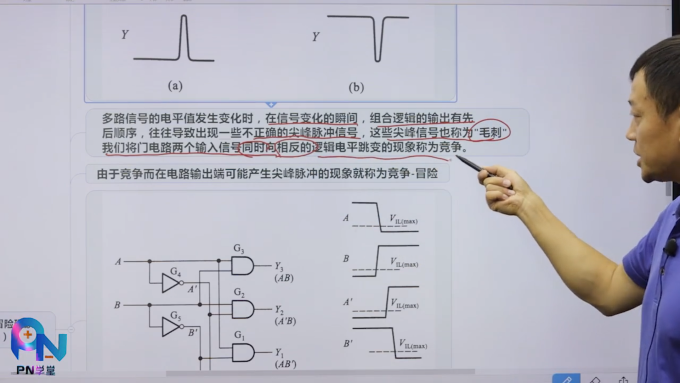 Y
Y
(a)
(b)
多路信号的电平值发生变化时，在信号变化的瞬间，组合逻辑的输出有先
后顺序，往往导致出现一些不正确的尖峰脉冲信号，这些尖峰信号也称为“毛刺”
我们将门电路两个输入信号同时向相反的逻辑电平跳变的现象称为竞争。
由于竞争而在电路输出端可能产生尖峰脉冲的现象就称为竞争-冒险
A
V_IL(max)
G3
A
Y3
(AB)
G4
A'
B
V_IL(max)
G2
B
Y2
(A'B)
A'
V_IL(max)
G5
B'
G1
Y1
(AB')
B'
V_IL(max)
PN
PN学堂